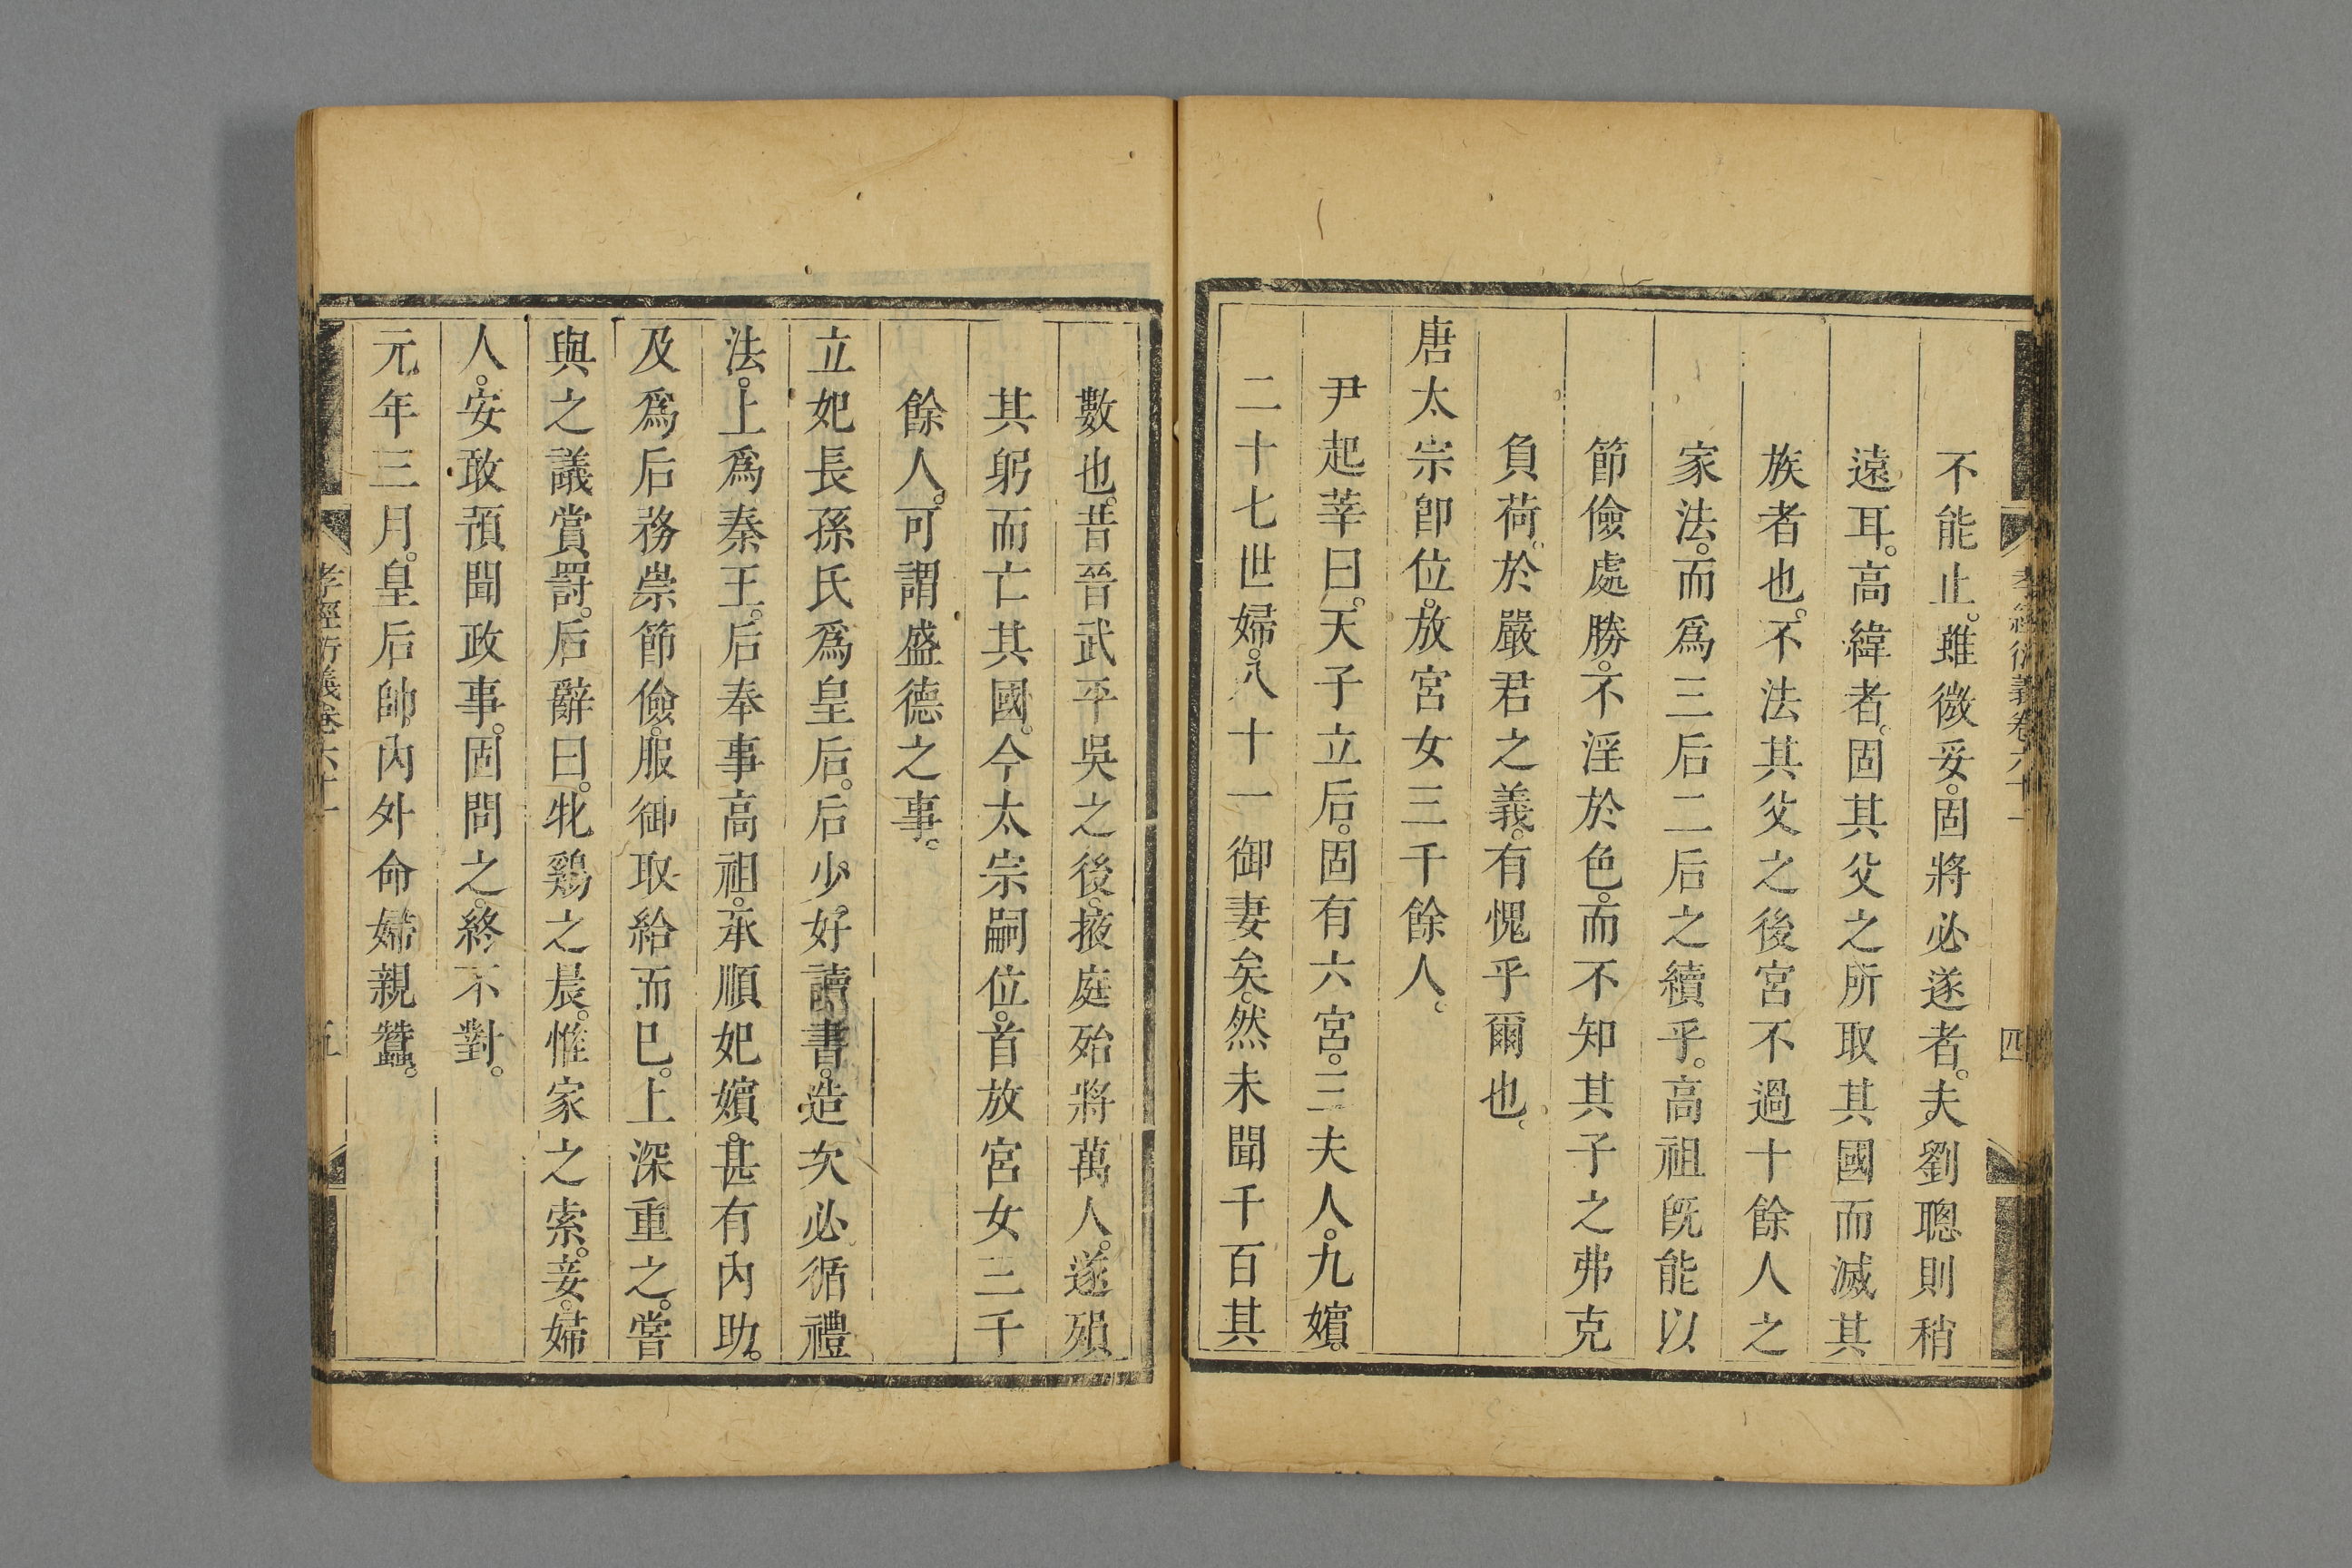 孝經衍義卷六十一　四
不能止。雖微妥。固將必遂者。夫劉聰則稍
遠耳。高緯者。固其父之所取其國而滅其
族者也。不法其父之後宮不過十餘人之
家法。而爲三后二后之續乎。高祖旣能以
節儉處勝。不淫於色。而不知其子之弗克
負荷。於嚴君之義。有愧乎爾也。
唐太宗卽位。放宮女三千餘人。
尹起莘曰。天子立后。固有六宮。三夫人。九嬪。
二十七世婦。八十一御妻矣。然未聞千百其
數也。昔晉武平吳之後。掖庭殆將萬人。遂殞
其躬而亡其國。今太宗嗣位。首放宮女三千
餘人。可謂盛德之事。
立妃長孫氏爲皇后。后少。好讀書。造次必循禮
法。上爲秦王。后奉事高祖。承順妃嬪。甚有內助。
及爲后務崇節儉。服御取給而已。上深重之。嘗
與之議賞罰。后辭曰。牝鷄之晨。惟家之索。妾。婦
人。安敢預聞政事。固問之。終不對。
元年三月。皇后帥內外命婦親蠶。
孝經衍義卷六十一　五